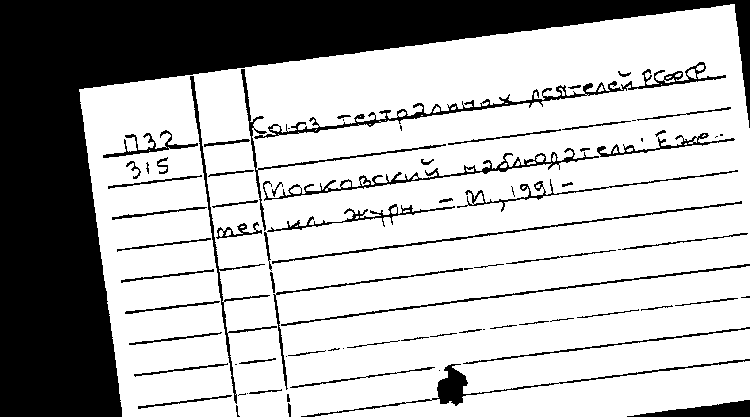 П32
315
Союз театральных деятелей РСФСР
Московский наблюдатель: Еже-
мес. ил. журн. - М., 1991-